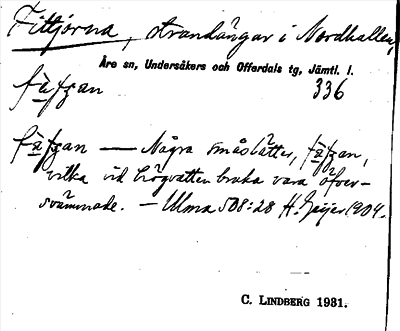 Fittjorna, strandängar i Nordhallen,
Åre sn, Undersåkers och Offerdals tg, Jämtl. l.
336
Några småslåtter,
vilka vid högvatten bruka vara öfver-
svämmade. – Ulma 508:28 H. Geijer 1904.
C. LINDBERG 1931.